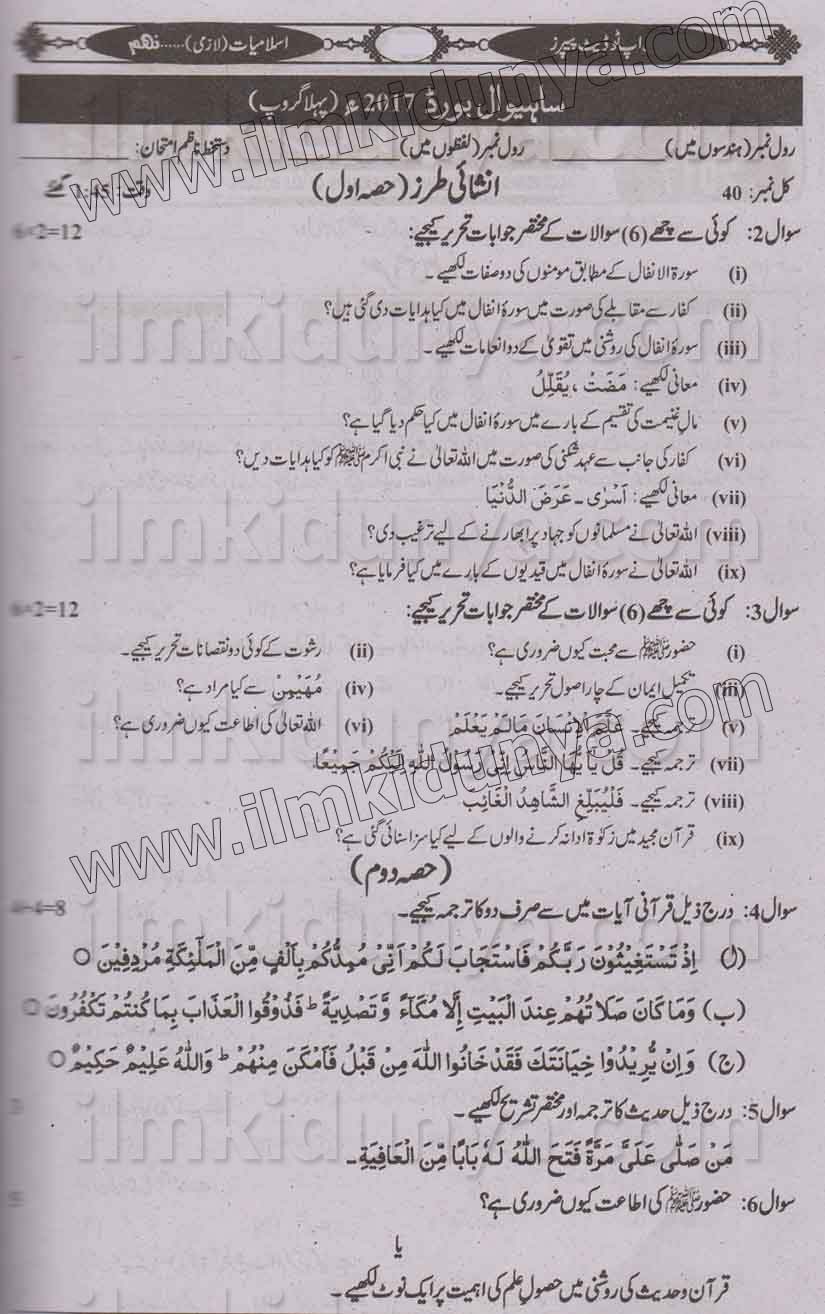 اپ ٹو ڈیٹ پیپرز
اسلامیات (لازمی).....نہم
ساہیوال بورڈ 2017ء (پہلا گروپ)
رول نمبر (ہندسوں میں) ____________ رول نمبر (لفظوں میں) ____________ دستخط ناظم امتحان: ____________
کل نمبر: 40 انشائی طرز (حصہ اول) وقت: 1:45 گھنٹے
سوال 2: کوئی سے چھے (6) سوالات کے مختصر جوابات تحریر کیجیے: 6×2=12
(i) سورۃ الانفال کے مطابق مومنوں کی دو صفات لکھیے۔
(ii) کفار سے مقابلے کی صورت میں سورۂ انفال میں کیا ہدایات دی گئی ہیں؟
(iii) سورۂ انفال کی روشنی میں تقویٰ کے دو انعامات لکھیے۔
(iv) معانی لکھیے: مَضَتْ ، يُقَلِّلُ
(v) مالِ غنیمت کی تقسیم کے بارے میں سورۂ انفال میں کیا حکم دیا گیا ہے؟
(vi) کفار کی جانب سے عہد شکنی کی صورت میں اللہ تعالیٰ نے نبی اکرم ﷺ کو کیا ہدایات دیں؟
(vii) معانی لکھیے: اَسْرٰى ۔ عَرَضَ الدُّنْيَا
(viii) اللہ تعالیٰ نے مسلمانوں کو جہاد پر ابھارنے کے لیے ترغیب دی؟
(ix) اللہ تعالیٰ نے سورۂ انفال میں قیدیوں کے بارے میں کیا فرمایا ہے؟
سوال 3: کوئی سے چھے (6) سوالات کے مختصر جوابات تحریر کیجیے: 6×2=12
(i) حضور ﷺ سے محبت کیوں ضروری ہے؟ (ii) رشوت کے کوئی دو نقصانات تحریر کیجیے۔
(iii) تکمیل ایمان کے چار اصول تحریر کیجیے۔ (iv) مُهَيْمِنْ سے کیا مراد ہے؟
(v) ترجمہ کیجیے۔ عَلَّمَ الْاِنْسَانَ مَالَمْ يَعْلَمْ (vi) اللہ تعالیٰ کی اطاعت کیوں ضروری ہے؟
(vii) ترجمہ کیجیے۔ قُلْ يٰاَيُّهَا النَّاسُ اِنِّىْ رَسُوْلُ اللّٰهِ اِلَيْكُمْ جَمِيْعًا
(viii) ترجمہ کیجیے۔ فَلْيُبَلِّغِ الشَّاهِدُ الْغَائِبَ
(ix) قرآن مجید میں زکوٰۃ ادا نہ کرنے والوں کے لیے کیا سزا سنائی گئی ہے؟
(حصہ دوم)
سوال 4: درج ذیل قرآنی آیات میں سے صرف دو کا ترجمہ کیجیے۔ 4+4=8
(ا) اِذْ تَسْتَغِيْثُوْنَ رَبَّكُمْ فَاسْتَجَابَ لَكُمْ اَنِّىْ مُمِدُّكُمْ بِاَلْفٍ مِّنَ الْمَلٰٓئِكَةِ مُرْدِفِيْنَ ○
(ب) وَمَا كَانَ صَلَا تُهُمْ عِنْدَ الْبَيْتِ اِلَّا مُكَآءً وَّ تَصْدِيَةً ؕ فَذُوْقُوا الْعَذَابَ بِمَا كُنْتُمْ تَكْفُرُوْنَ ○
(ج) وَاِنْ يُّرِيْدُوْا خِيَانَتَكَ فَقَدْ خَانُوا اللّٰهَ مِنْ قَبْلُ فَاَمْكَنَ مِنْهُمْ ؕ وَاللّٰهُ عَلِيْمٌ حَكِيْمٌ ○
سوال 5: درج ذیل حدیث کا ترجمہ اور مختصر تشریح لکھیے۔
مَنْ صَلّٰى عَلَىَّ مَرَّةً فَتَحَ اللّٰهُ لَهٗ بَابًا مِّنَ الْعَافِيَةِ۔
سوال 6: حضور ﷺ کی اطاعت کیوں ضروری ہے؟ 5
یا
قرآن و حدیث کی روشنی میں حصولِ علم کی اہمیت پر ایک نوٹ لکھیے۔
www.ilmkidunya.com
ilmkidunya.com
ilmkidunya.com
www.ilmkidunya.com
ilmkidunya.com
ilmkidunya.com
ilmkidunya.com
ilmkidunya.com